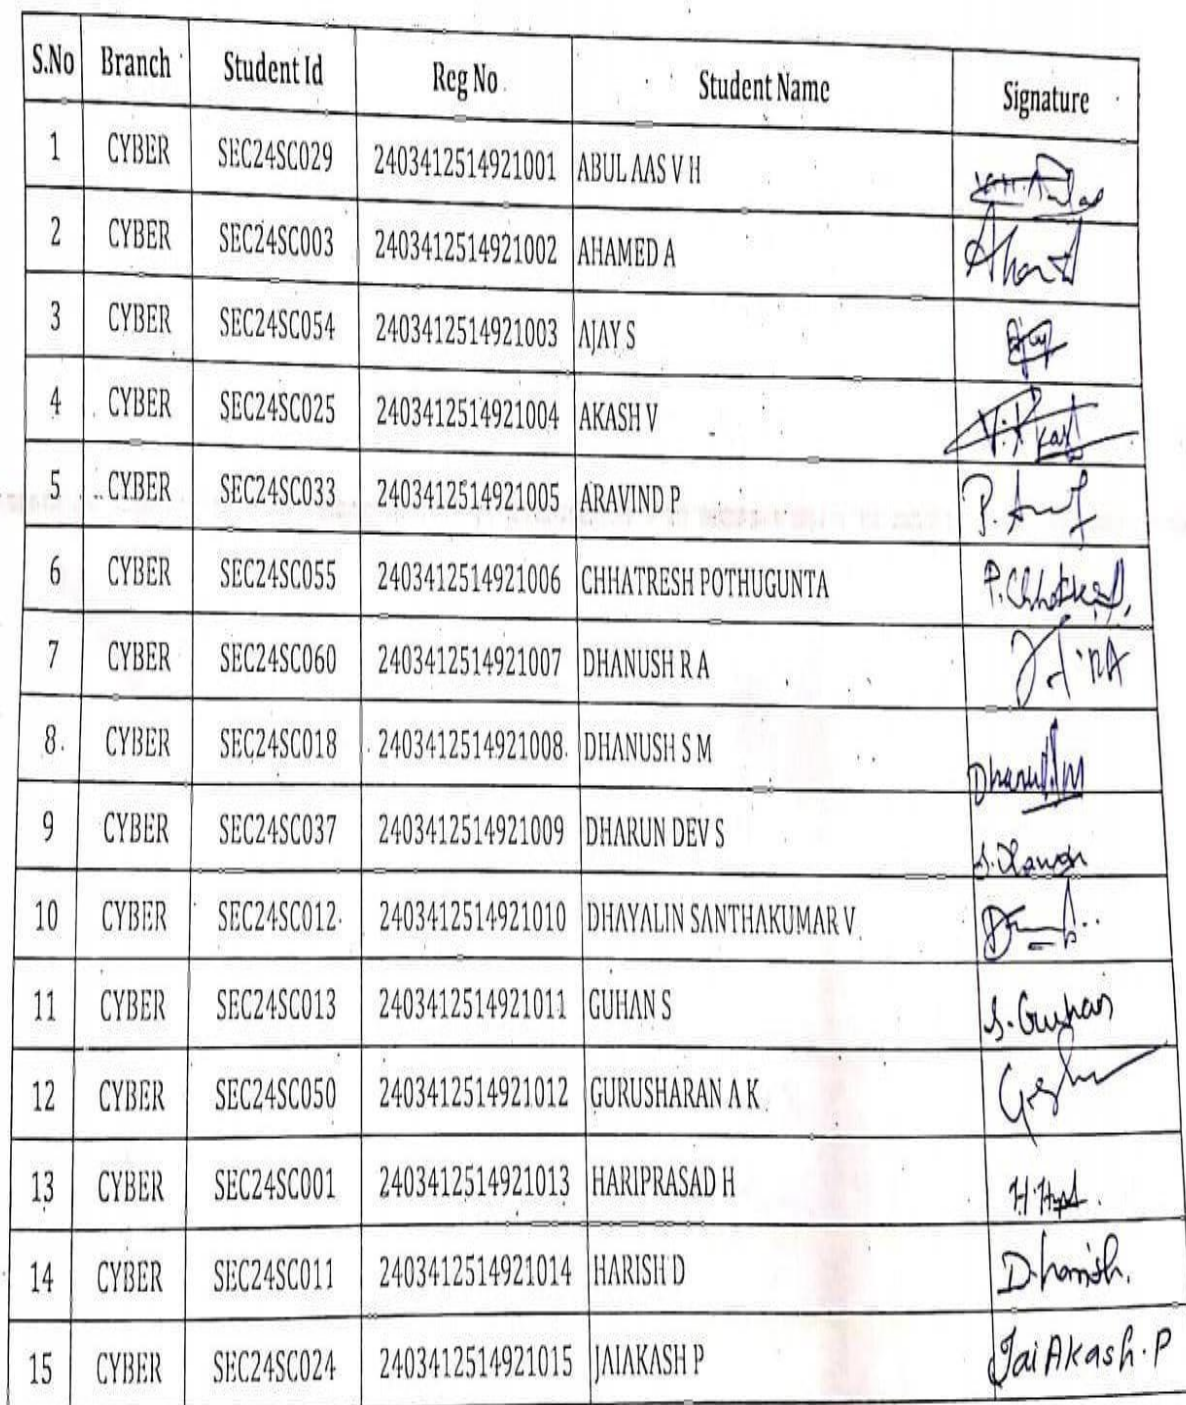 S.No Branch Student Id Reg No Student Name Signature
1 CYBER SEC24SC029 2403412514921001 ABUL AAS V H
2 CYBER SEC24SC003 2403412514921002 AHAMED A
3 CYBER SEC24SC054 2403412514921003 AJAY S Ajay
4 CYBER SEC24SC025 2403412514921004 AKASH V
5 CYBER SEC24SC033 2403412514921005 ARAVIND P
6 CYBER SEC24SC055 2403412514921006 CHHATRESH POTHUGUNTA
7 CYBER SEC24SC060 2403412514921007 DHANUSH R A
8 CYBER SEC24SC018 2403412514921008 DHANUSH S M
9 CYBER SEC24SC037 2403412514921009 DHARUN DEV S
10 CYBER SEC24SC012 2403412514921010 DHAYALIN SANTHAKUMAR V
11 CYBER SEC24SC013 2403412514921011 GUHAN S S. Guhan
12 CYBER SEC24SC050 2403412514921012 GURUSHARAN A K
13 CYBER SEC24SC001 2403412514921013 HARIPRASAD H
14 CYBER SEC24SC011 2403412514921014 HARISH D D. harish.
15 CYBER SEC24SC024 2403412514921015 JAIAKASH P Jai Akash. P